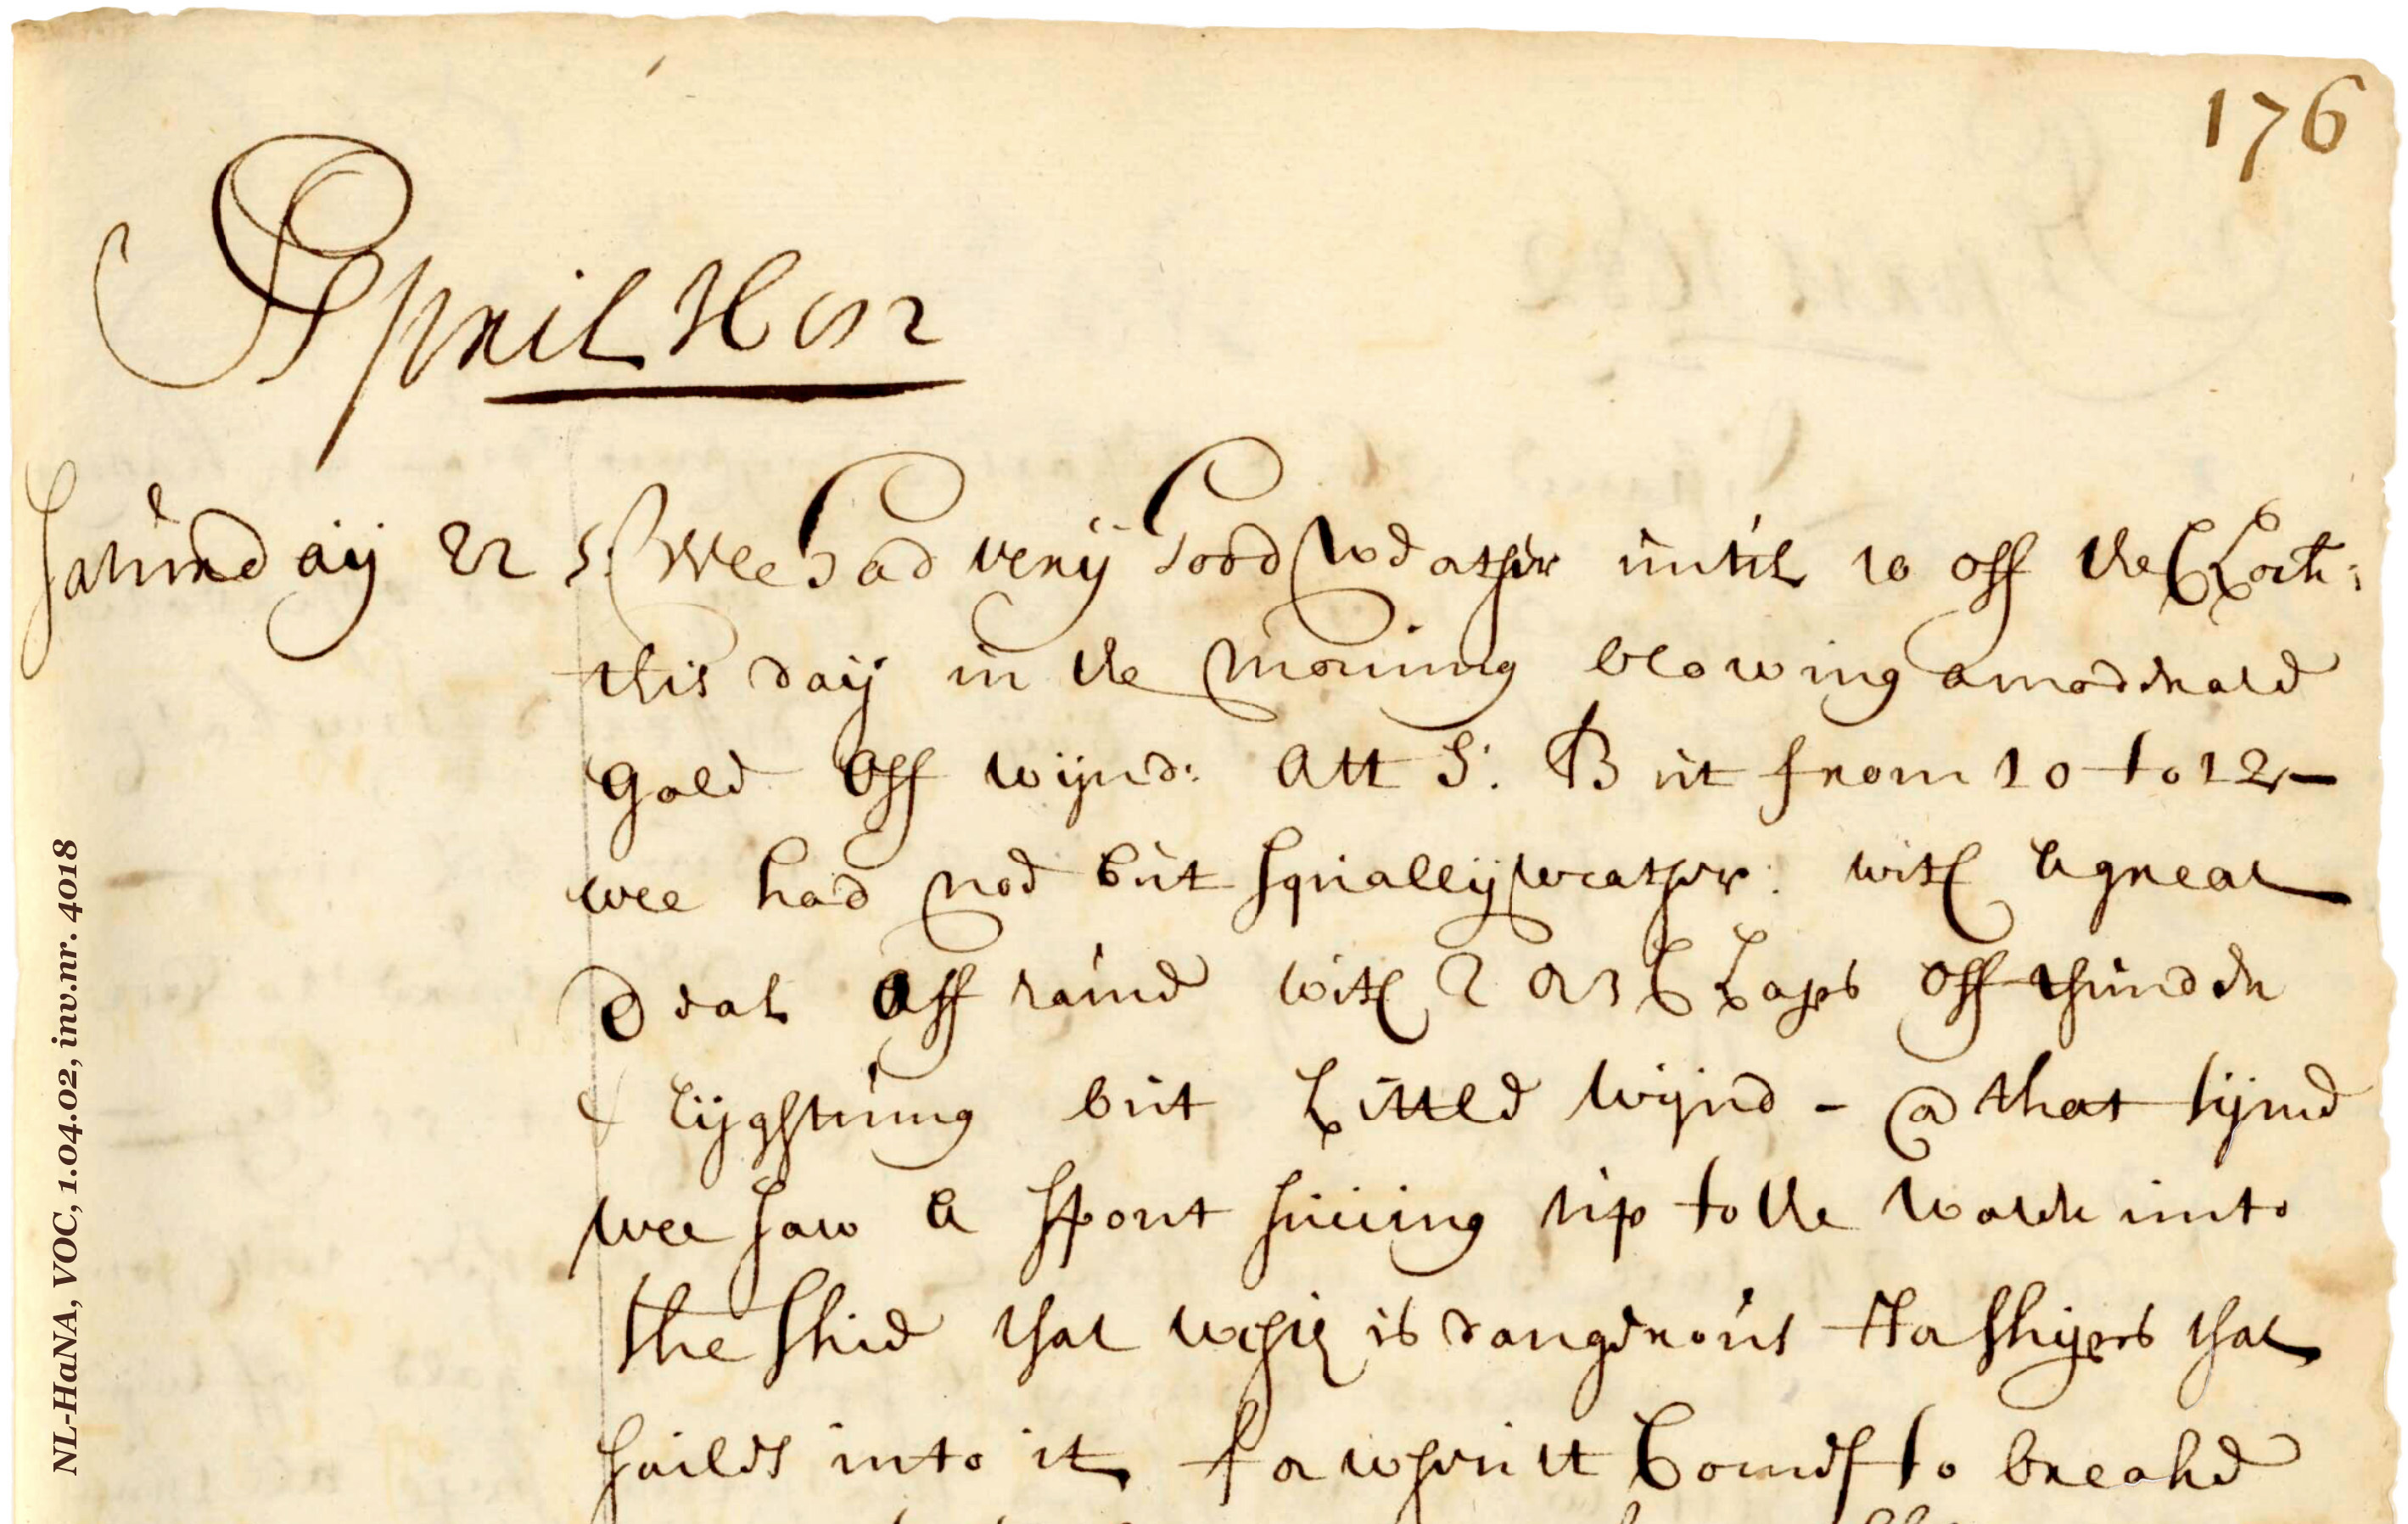 176
April 1682
Saturday 22 : Wee had very Good Weather until 10 off the Clock:
this day in the Morning blowing a moderate
Gale Off wynd: Att S: But from 10 to 12 –
wee had noe but squally weather: with a great
Deal Off raine with 2 or 3 Claps off thunder
& lyghtning but Little wynd - @ that tyme
wee saw a spout suiing up to the water into
the skie that which is dangerous to shyps that
sailes into it for when it Comes to breake
NL-HaNA, VOC, 1.04.02, inv.nr. 4018